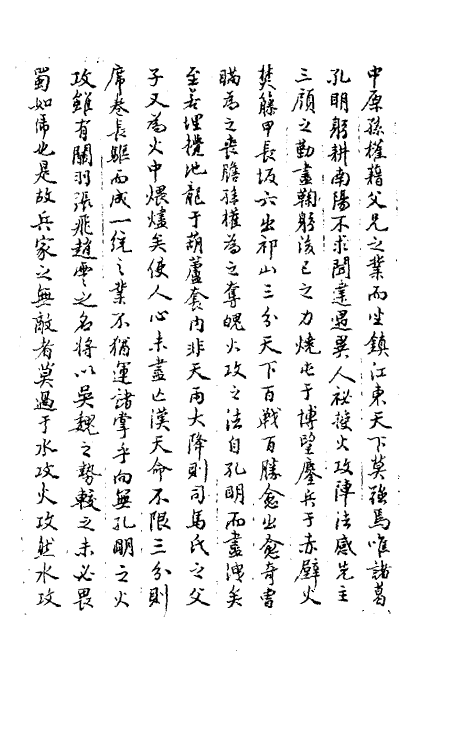 中原孫權藉父兄之業而坐鎮江東天下莫強焉唯諸葛
孔明躬耕南陽不求聞達遇異人祕授火攻陣法感先主
三顧之勤盡鞠躬後已之力燒屯于博望鏖兵于赤壁火
焚籐甲長坂六出祁山三分天下百戰百勝愈出愈奇曹
瞞為之喪膽孫權為之奪魄火攻之法自孔明而盡洩矣
至若埋攪地龍于葫蘆套內非天雨大降則司馬氏之父
子又為火中煨燼矣使人心未盡亡漢天命不限三分則
席卷長驅而成一統之業不猶運諸掌乎向無孔明之火
攻雖有關羽張飛趙雲之名將以吳魏之勢較之未必畏
蜀如彿也是故兵家之無敵者莫過于水攻火攻然水攻